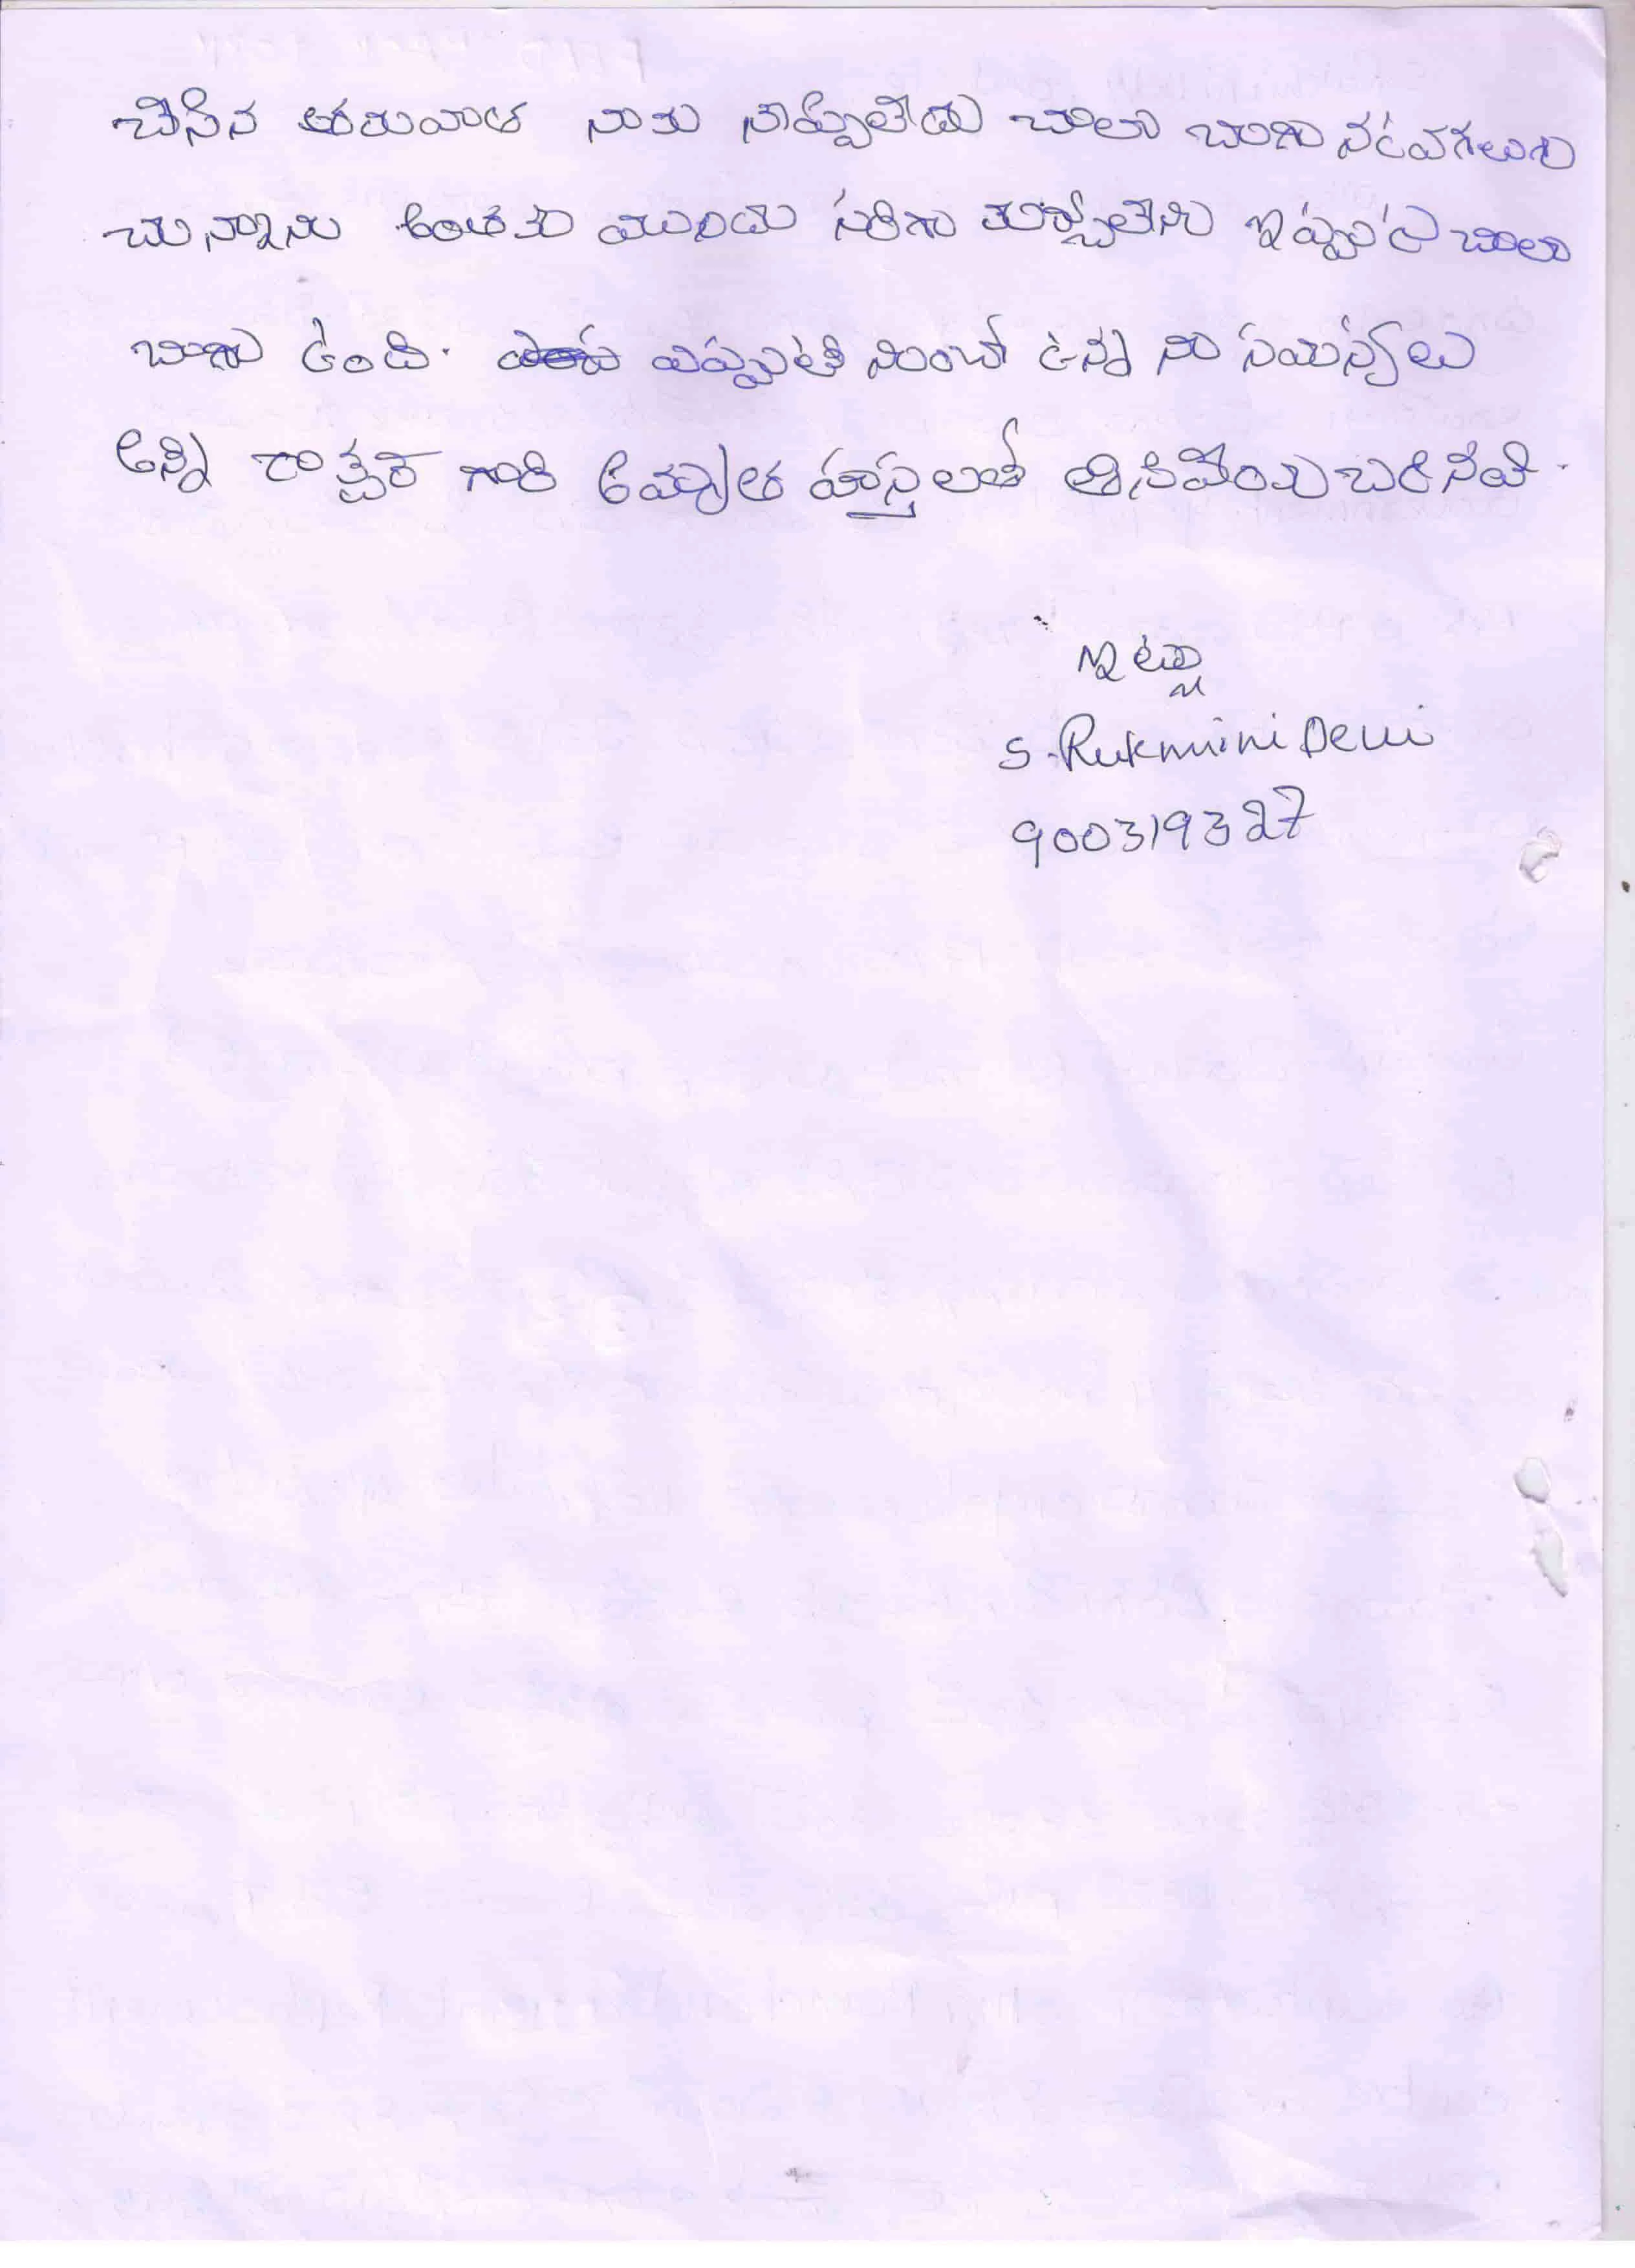 చేసిన తరువాత నాకు నొప్పులేదు చాలా బాగా నడవగలుగు
చున్నాను అంతకు ముందు సరిగా కూర్చోలేని ఇప్పుడు చాలా
బాగా ఉంది. ఎప్పటి నుంచో ఉన్న నా సమస్యలు
అన్ని డాక్టర్ గారి అమృత హస్తలతో తీసివేయబడినవి.
ఇట్లు
S. Rukmini Devi
900319327